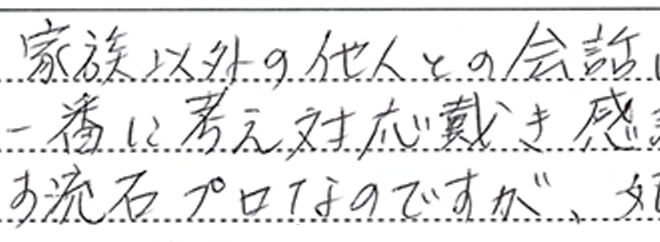 家族以外の他人との会話
一番に考え対応戴き感
す流石プロなのですが、